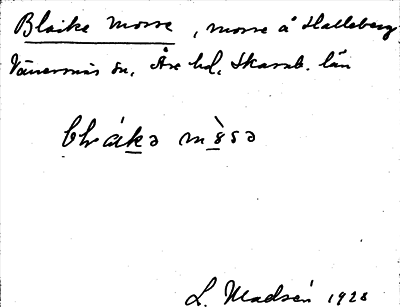 Blaike mosse, mosse å Halleberg
Vänersnäs sn, Åse hd, Skarab. län
blràkə mòsə
L. Madsén 1928